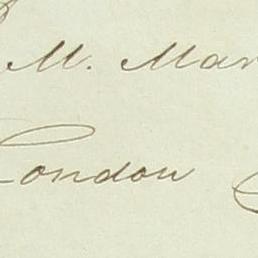 M. Mar
London